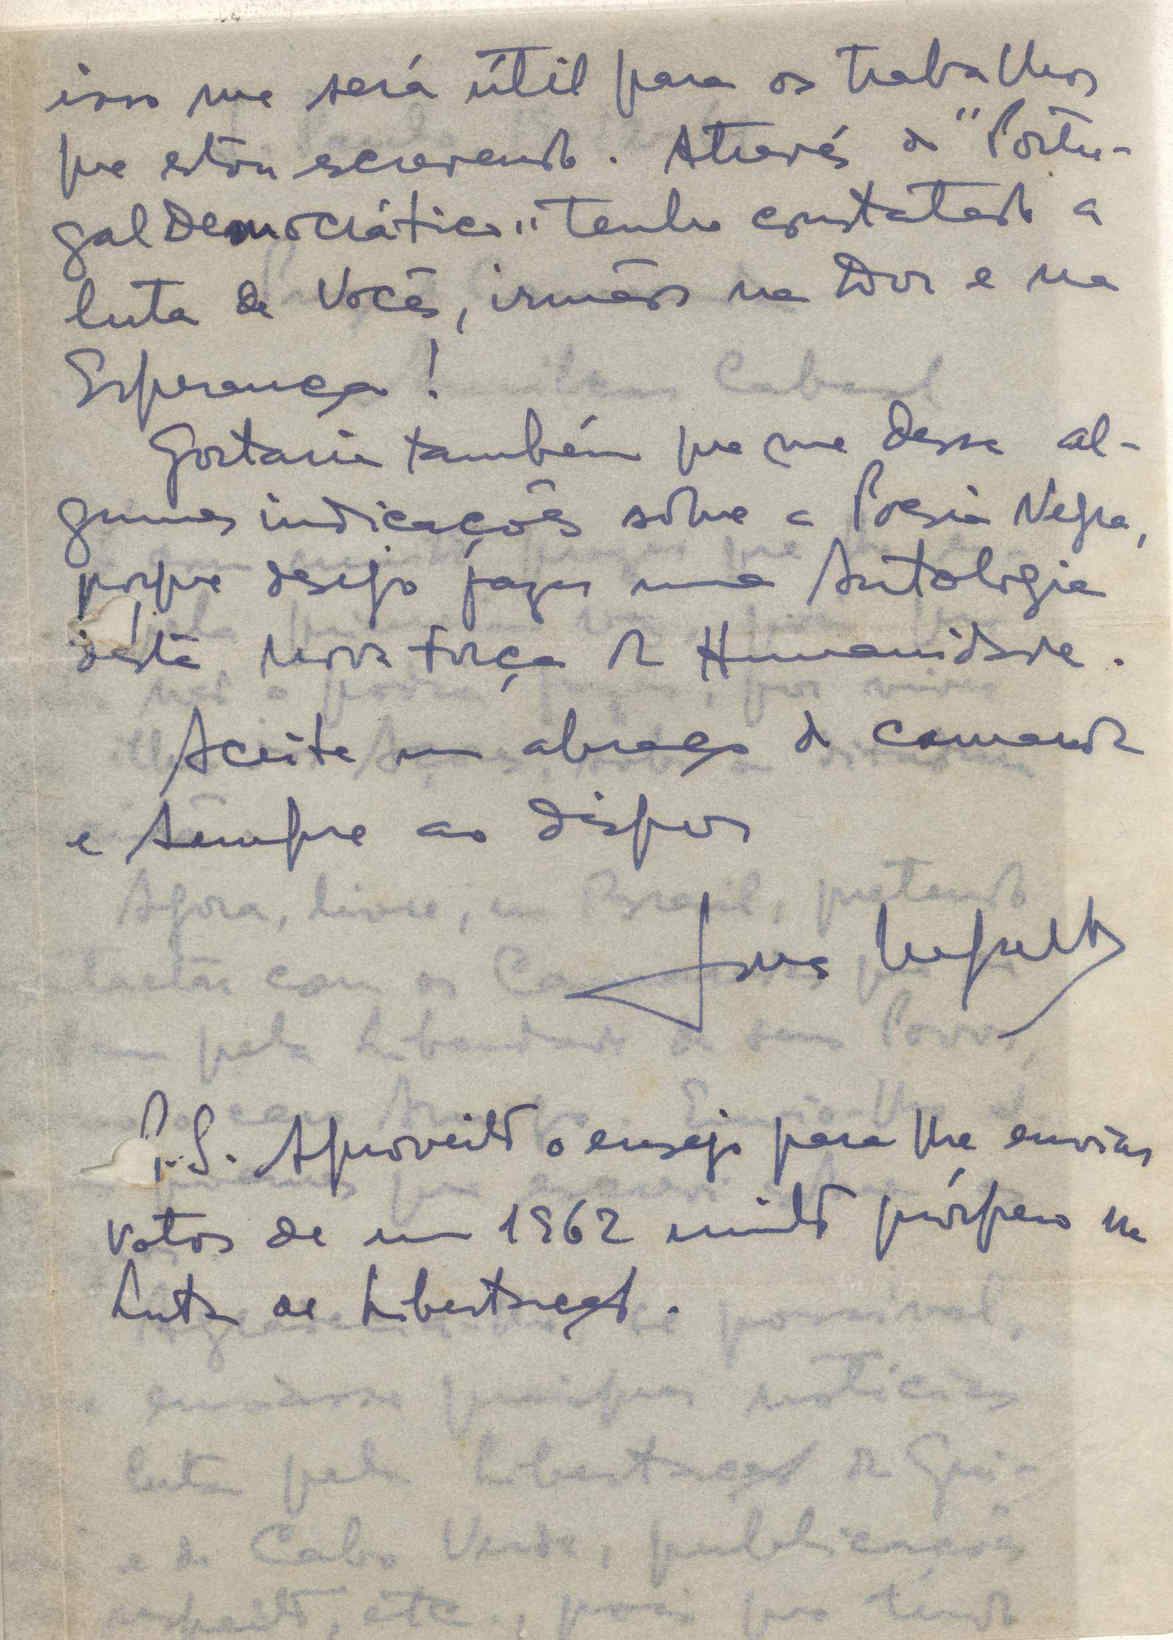 isso me será útil para os trabalhos
que estou escrevendo. Através do "Portu-
gal Democrático" tenho constatado a
luta de Vocês, irmãos na Dor e na
Esperança!
Gostaria também que me desse al-
gumas indicações sôbre a Poesia Negra,
porque desejo fazer uma Antologia
desta nova força da Humanidade.
Aceite um abraço do camarada
e sempre ao dispor
P.S. Aproveito o ensejo para lhe enviar
votos de um 1962 muito próspero na
Luta de Libertação.